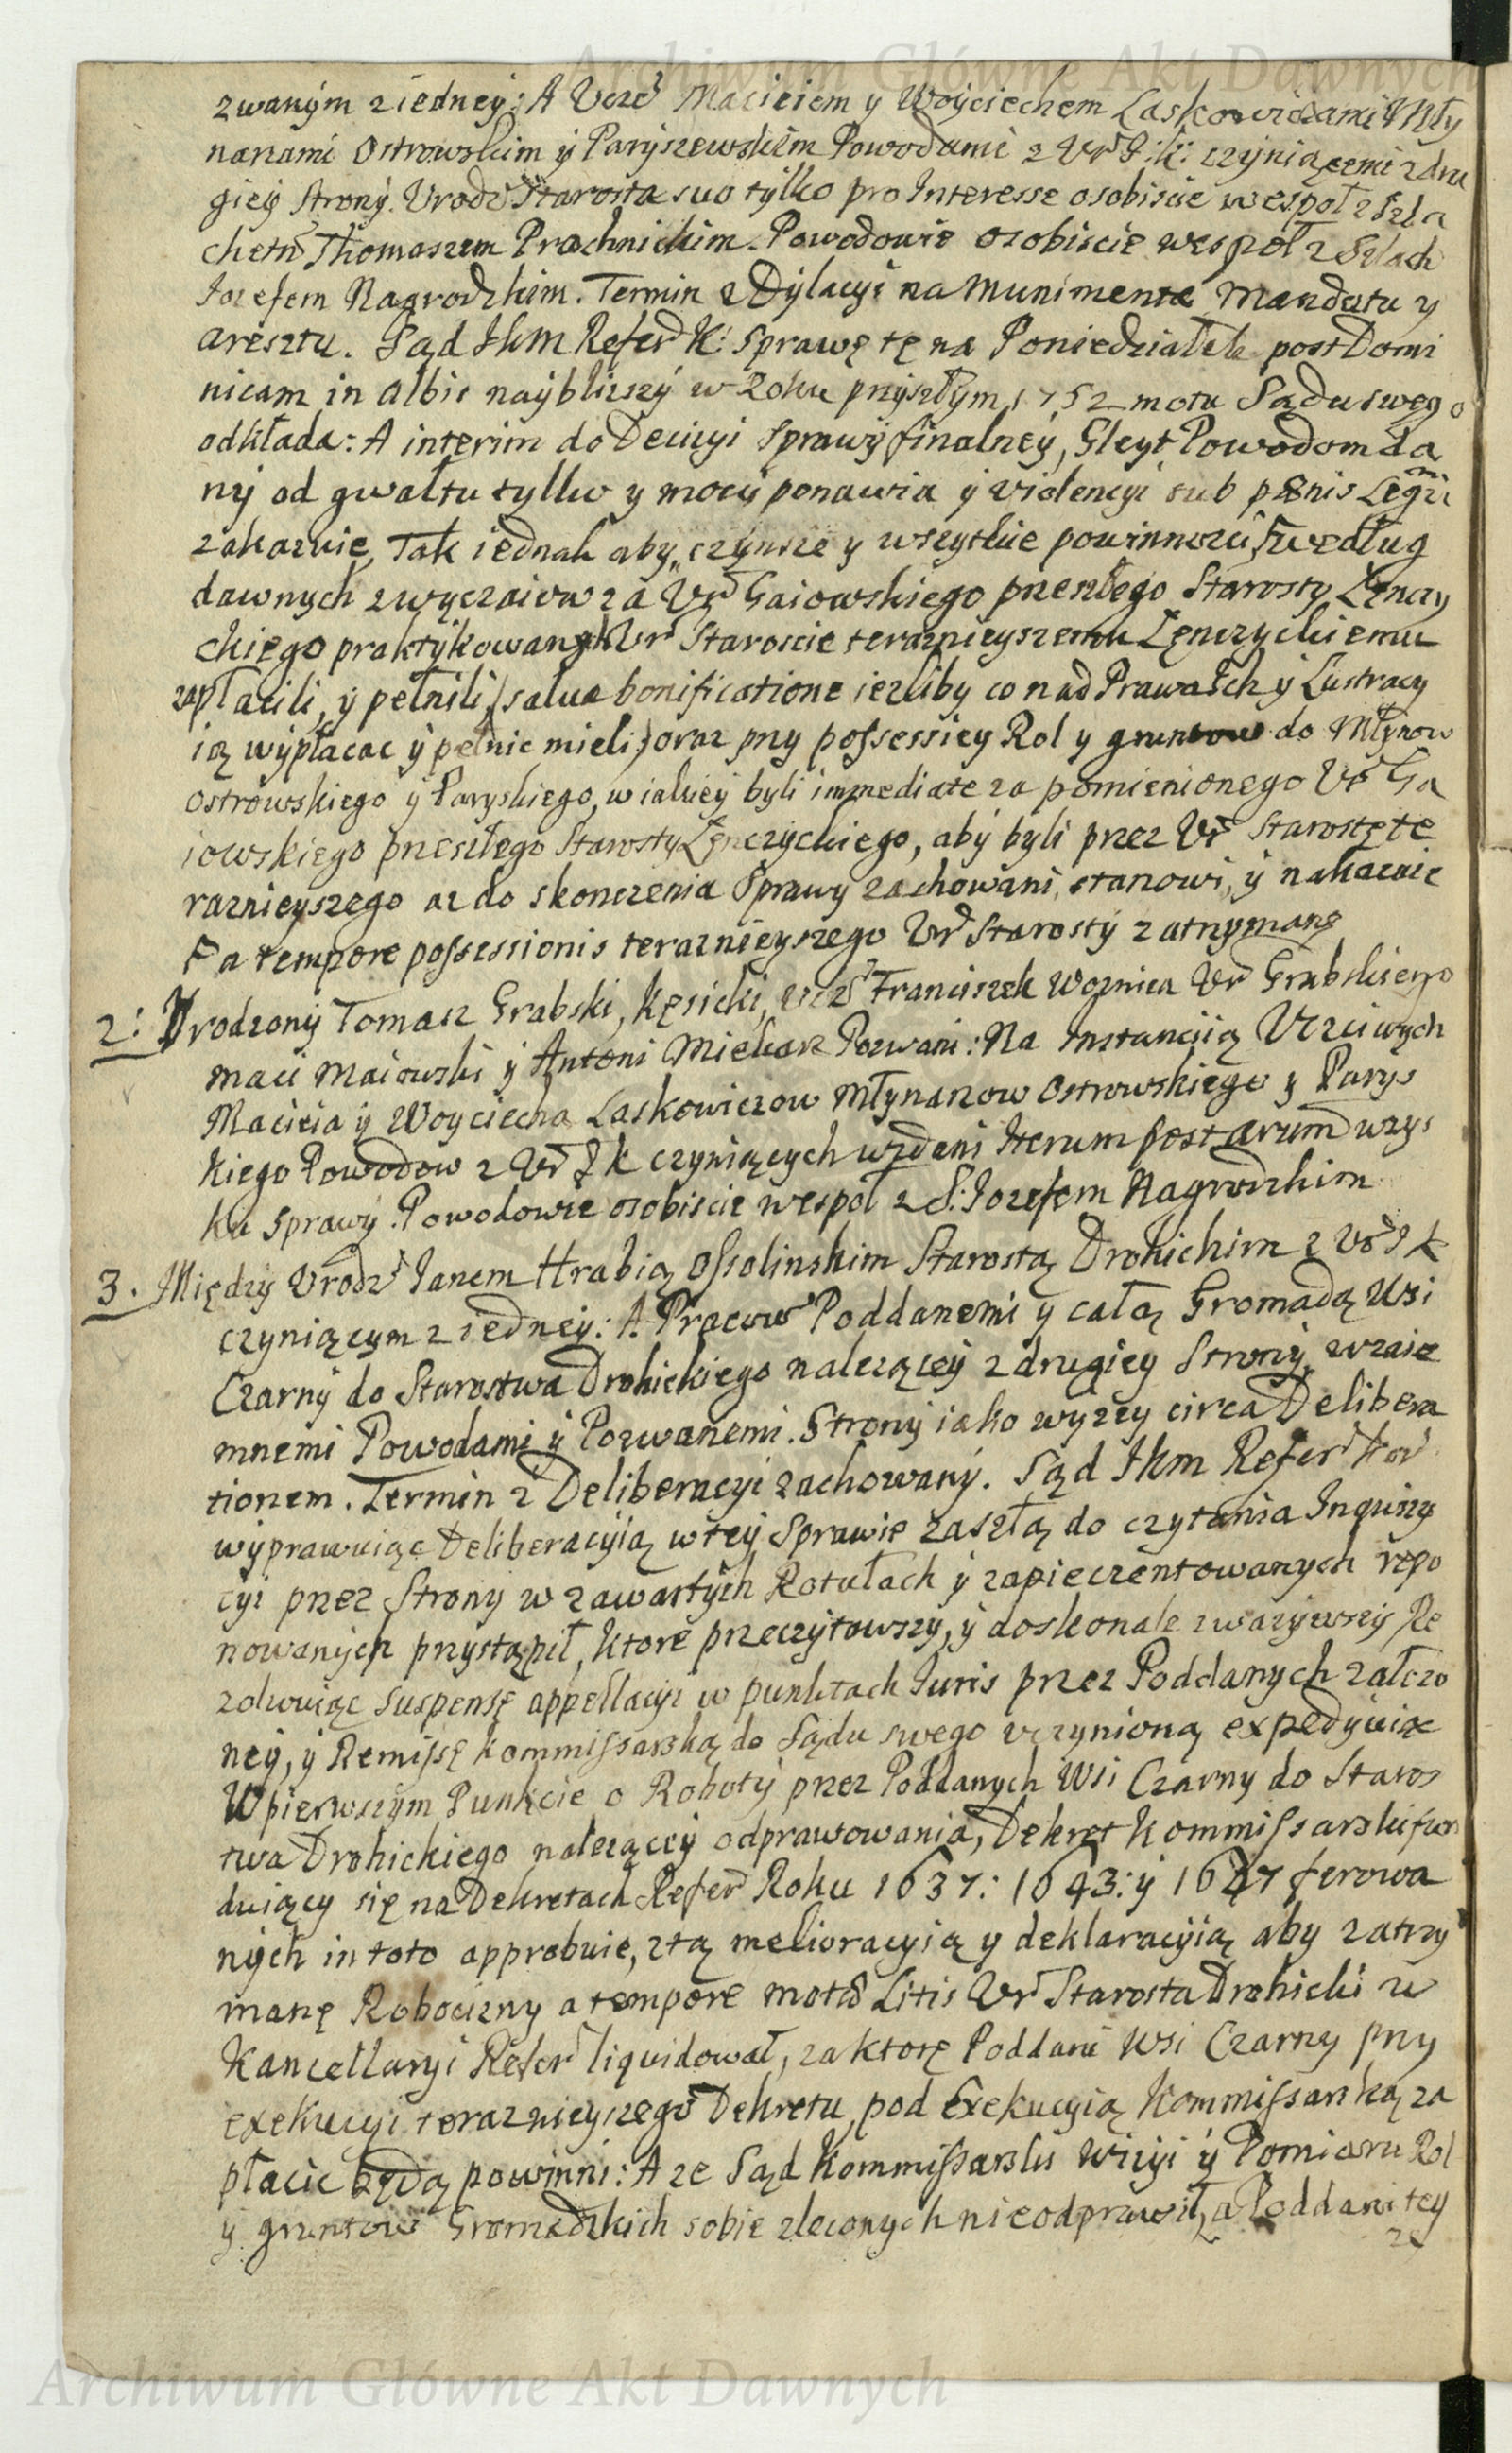 Archiwum Główne Akt Dawnych
zwanym z iedney: A Uczć Macieiem y Woyciechem Laskowiczami Mły
narzami Ostrowskim y Paryszewskim Powodami z Ur J: K: czyniącemi z dru
giey Strony. Urodz Starosta suo tylko pro Interesse osobiscie wespoł z Szla
chetn Thomaszem Prochnickim. Powodowie osobiscie wespoł z Szlach
Jozefem Nagrodzkim. Termin z Dylacyi na Munimenta Mandatu y
aresztu. Sąd JKM Refer K: Sprawę tę na Poniedziałek post Domi
nicam in Albis nayblizszy w Roku przyszłym 1752 motu Sądu swego
odkłada: A interim do Decyzyi Sprawy finalney, Gleyt Powodom da
ny od gwałtu tylko y mocy ponawia y violencyi sub pænis Legũ
zakazuie, Tak iednak aby czynsze y wszytkie powinnosci według
dawnych zwyczaiow za Ur Gaiowskiego przeszłego Starosty Łęczy
ckiego praktykowanych Ur Staroscie teraznieyszemu Łęczyckiemu
zapłacili, y pełnili /salva bonificatione iezliby co nad Prawa Ich y Lustracy
ią wypłacac y pełnic mieli/ oraz przy possessiey Rol y gruntow do Młynow
Ostrowskiego y Paryskiego, w iakiey byli immediate za pomienionego Ur Ga
iowskiego przeszłego Starosty Łęczyckiego, aby byli przez Ur Starostę te
raznieyszego az do skonczenia Sprawy zachowani, stanowi, y nakazuie
a tempore possessionis teraznieyszego Ur Starosty zatrzymane
2: Urodzony Tomasz Grabski, Kęsicki, Uczć Franciszek Woznica Ur Grabskiego
Maci Maiowski y Antoni Piekarz Pozwani: Na Instancyią Uczciwych
Macieia y Woyciecha Laskowiczow Młynarzow Ostrowskiego y Parys
kiego Powodow z Ur J K czyniących wzdani Iterum post arum wzys
ku Sprawy. Powodowie osobiscie wespoł z S: Jozefem Nagrodzkim
3. Między Urodz Janem Hrabią Ossolinskim Starostą Drohickim z Ur J K
czyniącym z iedney: A Pracow Poddanemi y całą Gromadą Wsi
Czarny do Starostwa Drohickiego nalezącey z drugiey Strony, wzaie
mnemi Powodami y Pozwanemi. Strony iako wyzey circa Delibera
tionem. Termin z Deliberacyi zachowany. Sąd JKM Refer Kor
wyprawuiąc Deliberacyią w tey Sprawie zaszłą do czytania Inquizy
cyi przez Strony w zawartych Rotułach y zapieczentowanych repo
nowanych przystąpił, ktore przeczytawszy, y doskonale zwazywszy Re
zolwuiąc Suspensę appellacyi w punktach Iuris przez Poddanych załozo
ney, y Remissę Kommissarską do Sądu swego uczynioną expedyuiąc
W pierwszym Punkcie o Roboty przez Poddanych Wsi Czarny do Staros
twa Drohickiego nalezącey odprawowania, Dekret Kommissarski fun
duiący się na Dekretach Refer Roku 1637: 1643: y 1647 ferowa
nych in toto approbuie, z tą melioracyią y deklaracyią aby zatrzy
manę Robocizny a tempore motæ Litis Ur Starosta Drohicki w
Kancellaryi Refer liquidował, za ktorę Poddani Wsi Czarny przy
exekucyi teraznieyszego Dekretu, pod Exekucyią Kommissarską za
płacic będą powinni: A ze Sąd Kommissarski Wizyi y Pomiaru Rol
y gruntow Gromadzkich sobie zleconych nie odprawił, a Poddani tey
Archiwum Główne Akt Dawnych